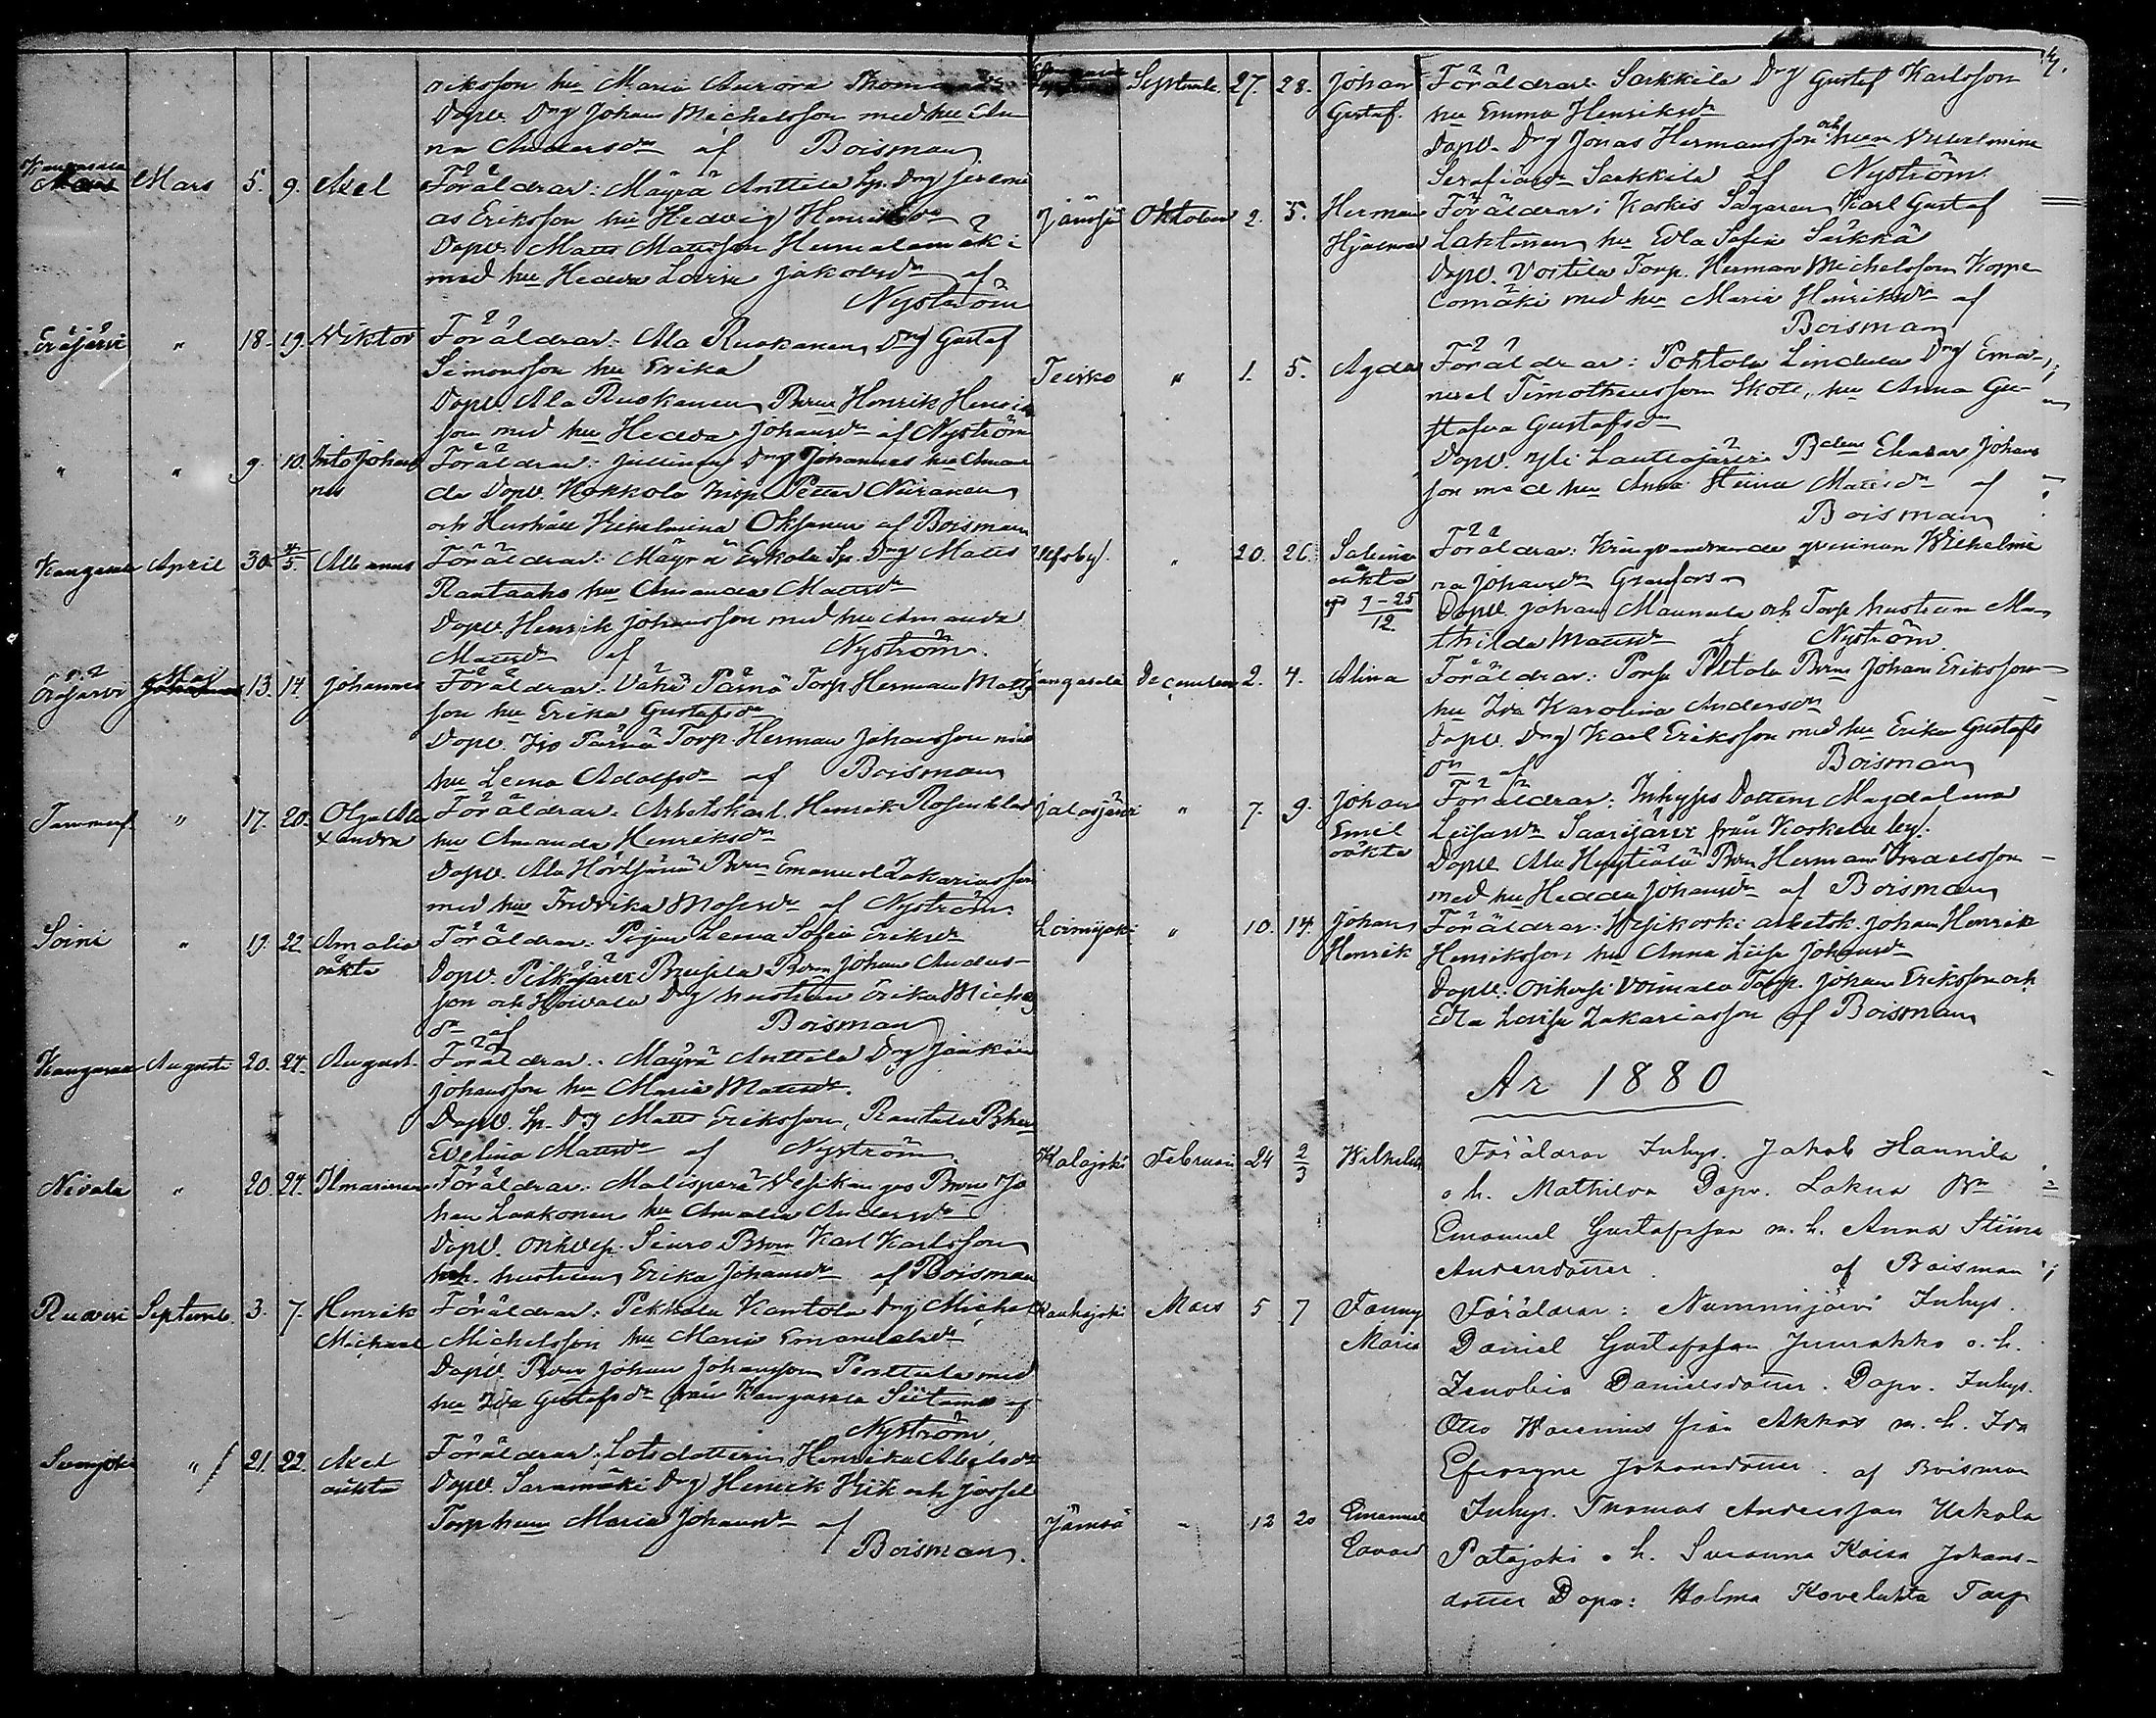 riksson hu Maria Aurora
Dopv. Drg Johan Michelsson med hu An
na Andersdr af Boisman
Kangasala Mars 5. 9. Axel Föräldrar: Mäyrä Anttila Sp. Drg Jeremi
as Eriksson hu Hedvig Henriksdr
Dopv. Matts Mattsson Humalamäki
med hu Hedda Lovisa Jakobsdr af
Nyström
Eräjärvi " 18. 19. Viktor Föräldrar: Ala Ruokanen Drg Gustaf
Simonsson hu Erika
Dopv. Ala Ruokanen Henrik Henrik
son med hu Hedda Johansdr af Nyström
" " 9. 10. Into Johan Föräldrar: Jullinen Drg Johannes hu Aman
nes da Dopv. Kokkola Inhys Petter
och Hushåll Vilhelmina Oksanen af Boisman
Kangasala April 30. 4/5. Föräldrar: Mäyrä Eskola Sp. Drg Matts
Rantaaho hu Amanda Mattsdr
Dopv. Henrik Johansson med hu Amanda
Mattsdr af Nyström.
Eräjärvi Maj 13. 14. Johannes Föräldrar: Vähä Pärnä Torp. Herman Matts
son hu Erika Gustafsdr
Dopv. Iso Pärnä Torp. Herman Johansson med
hu Leena Adolfsdr af Boisman
Tammerf. " 17. 20. Olga Ale Föräldrar: Arbetskarl Henrik Rosenblad
xandra hu Amanda Henriksdr
Dopv. Ala Emanuel Zakariasson
med hu Fredrika Mosesdr af Nyström.
Soini " 19. 22. Amalia Föräldrar: Pigan Leena Sofia Eriksdr
oäkta Dopv. Pitkäjärvi Johan Anders-
son och Drg hustrun Erika Michels
dr af Boisman
Kangasala Augusti 20. 24. August. Föräldrar: Mäyrä Anttila Drg
Johansson hu Maria Mattsdr.
Dopv. Sp. Drg Matts Eriksson, Rantala
Evelina Mattsdr af Nyström.
Nivala " 20. 24. Ilmarinen Föräldrar: Malisperä Vesikangas Jo
han Laakonen hu Amalia Andersdr
Dopv. Onkkesi Siuro Karl Karlsson
hustrun Erika Johansdr af Boisman
Ruovesi Septemb. 3. 7. Henrik Föräldrar: Pekkala Kantola Drg Michel
Michael Michelsson hu Maria Emanuelsdr
Dopv. Johan Johansson Penttala med
hu Ida Gustafsdr från Kangasala Siitama af
Nyström.
" 21. 22. Axel Föräldrar: Lotsdottern Henrika Abelsdr
oäkta Dopv. Saramäki Drg Henrik och
Torp. hustrun Maria Johansdr af
Boisman.
Septemb. 27. 28. Johan Föräldrar: Sarkkila Drg Gustaf Karlsson
Gustaf. hu Emma Henriksdr
Dopv. Drg Jonas Hermansson och Vilhelmina
Serafiasdr Sarkkila af Nyström.
Jämsä Oktober 2. 5. Herman Föräldrar: Koskis Sågaren Karl Gustaf
Hjalmar Lahtinen hu Edla Sofia Särkkä
Dopv. Voitila Torp. Herman Michelsson Koppe
lomäki med hu Maria Henriksdr af
Boisman
Teisko " 1. 5. Agda Föräldrar: Pohtola Lindula Drg Ema-
nuel Timotheusson Skott, hu Anna Gu-
stafva Gustafsdr
Dopv. Yli Lauttajärvi Eleasar Johans
son med hu Anna Stiina Mattsdr af
Boisman
Ulfsby. " 20. 26. Sabina Föräldrar: Kringvandrande qvinnan Vilhelmi
oäkta na Johansdr Granfors
9-25/12. Dopv. Johan Maunula och Torp hustrun Ma
thilda Mattsdr af Nyström.
Kangasala December 2. 4. Alina Föräldrar: Porsa Peltola Johan Eriksson
hu Ida Karolina Andersdr
Dopv. Drg Karl Eriksson med hu Erika Gustafs
dr af Boisman
Jalasjärvi " 7. 9. Johan Föräldrar: Inhyses Dottern Magdalena
Emil Saarijärvi från Koskela by.
oäkta Dopv. Ala Hyytiälä Herman
med hu Hedda Johansdr af Boisman
Loimijoki " 10. 14. Johan Föräldrar: Vesikoski arbetsk. Johan Henrik
Henrik Henriksson hu Anna Liisa Johansdr
Dopv. Onkkesi Torp. Johan Eriksson och
Edla Lovisa Zakariasson af Boisman
År 1880
Kalajoki Februari 24 2/3 Vilhelm Föräldrar Inhys. Jakob Hannila
o h. Mathilda Dopv. Lakua
Emanuel Gustafsson m. h. Anna Stiina
Andersdotter. af Boisman
Kauhajoki Mars 5 7 Fanny Föräldrar: Nummijärvi Inhys.
Maria Daniel Gustafsson Juurakko o. h.
Zenobia Danielsdotter. Dopv. Inhys.
Otto från Akkas m. h. Ida
Efrosyne Johansdotter. af Boisman
Jämsä " 12 20 Emanuel Inhys. Thomas Andersson Uskola
Edvard Patajoki o h. Susanna Kaisa Johans-
dotter Dopv: Holma Kovelahta Torp